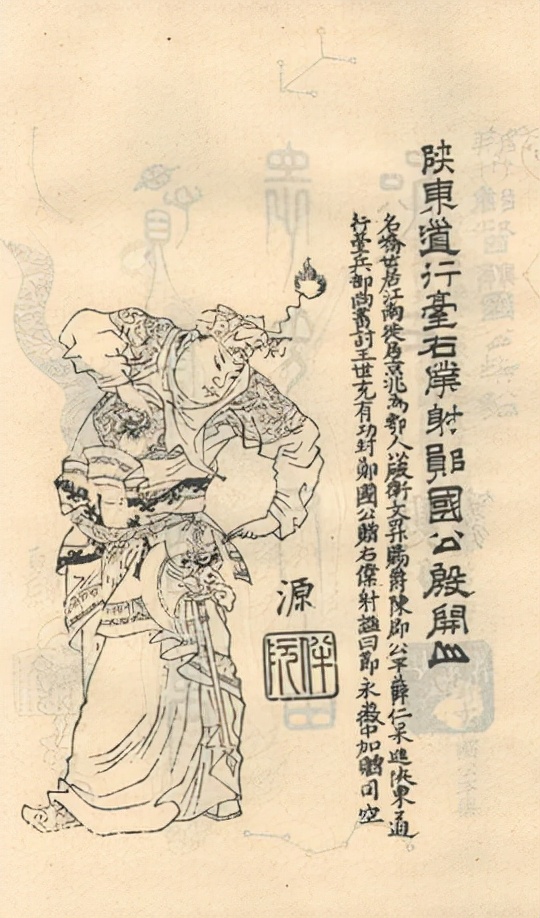 陝東道行臺右僕射鄖國公殷開山
名嶠世居江南徙居京兆為鄠人以破衛文昇賜爵陳郡公平薛仁杲進陝東道
行臺兵部尚書討王世充有功封鄖國公贈右僕射諡曰節永徽中加贈司空
源
伴阮